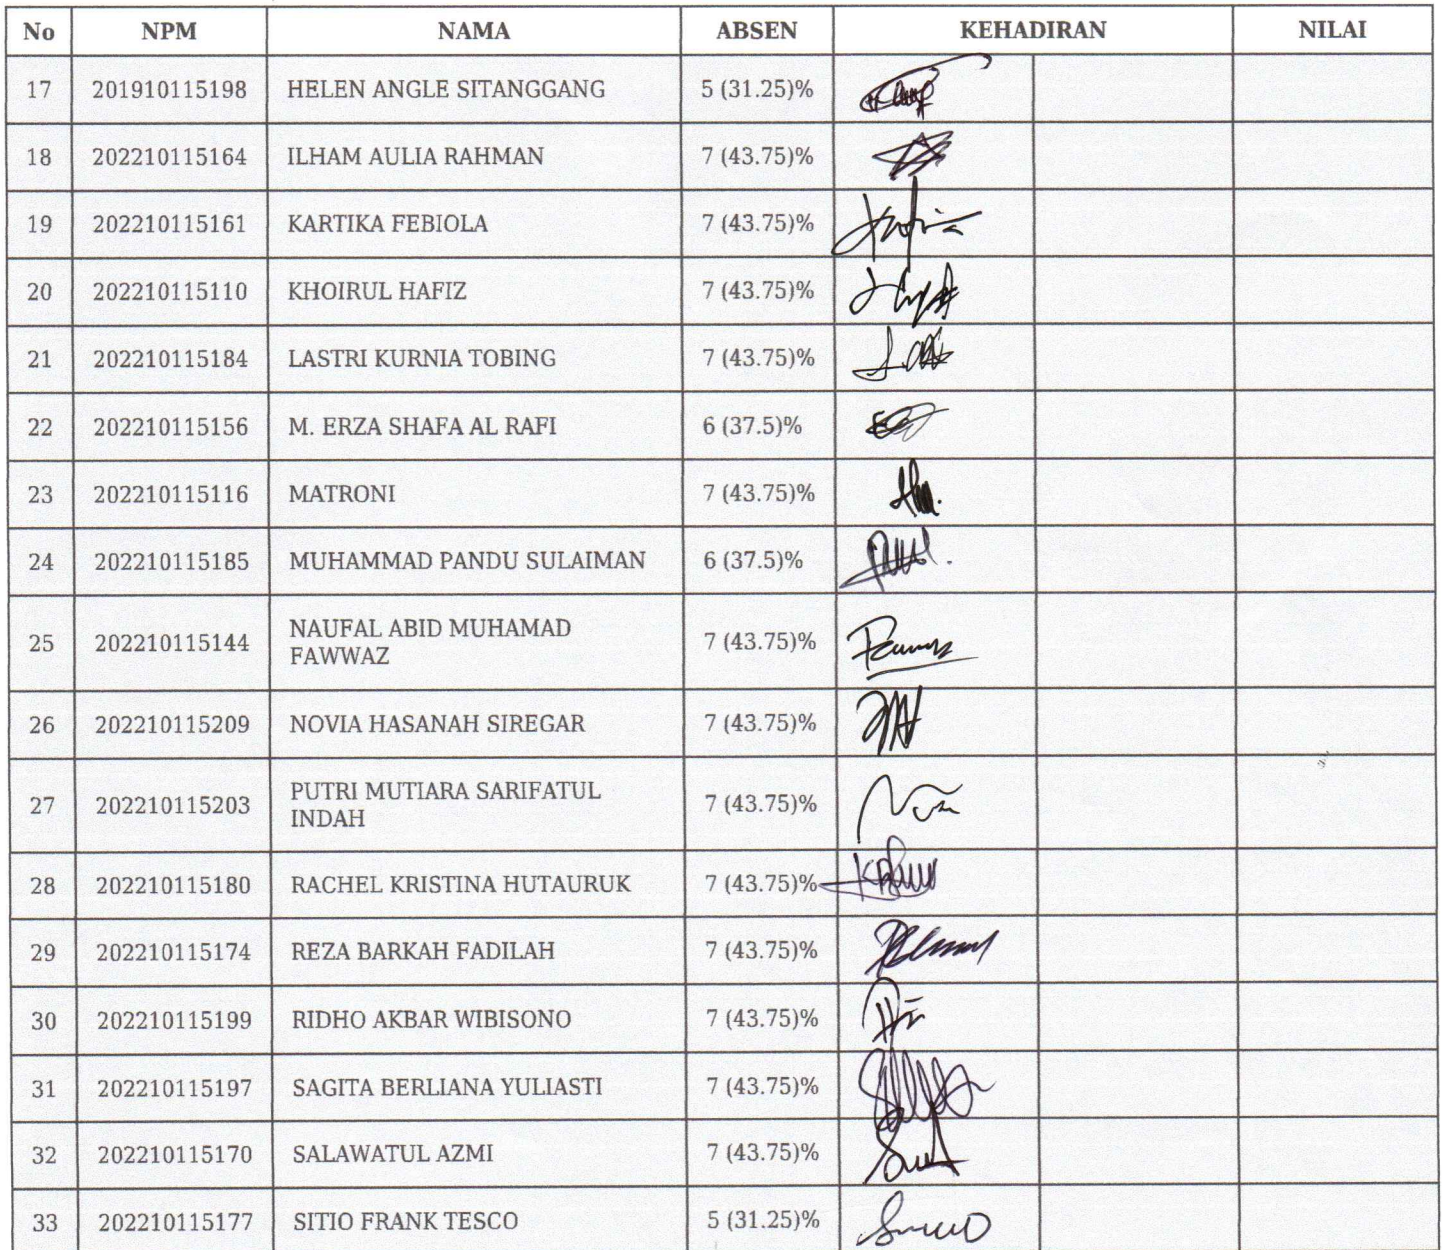 No NPM NAMA ABSEN KEHADIRAN NILAI
17 201910115198 HELEN ANGLE SITANGGANG 5 (31.25)%
18 202210115164 ILHAM AULIA RAHMAN 7 (43.75)%
19 202210115161 KARTIKA FEBIOLA 7 (43.75)%
20 202210115110 KHOIRUL HAFIZ 7 (43.75)%
21 202210115184 LASTRI KURNIA TOBING 7 (43.75)%
22 202210115156 M. ERZA SHAFA AL RAFI 6 (37.5)%
23 202210115116 MATRONI 7 (43.75)%
24 202210115185 MUHAMMAD PANDU SULAIMAN 6 (37.5)%
25 202210115144 NAUFAL ABID MUHAMAD
FAWWAZ 7 (43.75)%
26 202210115209 NOVIA HASANAH SIREGAR 7 (43.75)%
27 202210115203 PUTRI MUTIARA SARIFATUL
INDAH 7 (43.75)%
28 202210115180 RACHEL KRISTINA HUTAURUK 7 (43.75)%
29 202210115174 REZA BARKAH FADILAH 7 (43.75)%
30 202210115199 RIDHO AKBAR WIBISONO 7 (43.75)%
31 202210115197 SAGITA BERLIANA YULIASTI 7 (43.75)%
32 202210115170 SALAWATUL AZMI 7 (43.75)%
33 202210115177 SITIO FRANK TESCO 5 (31.25)%